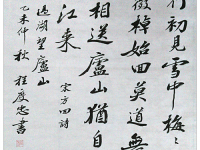 行初見雪中梅〻
微棹始回莫道無
相送廬山猶自
江来
宋方回詩
過湖望廬山
乙未仲秋程度忠書